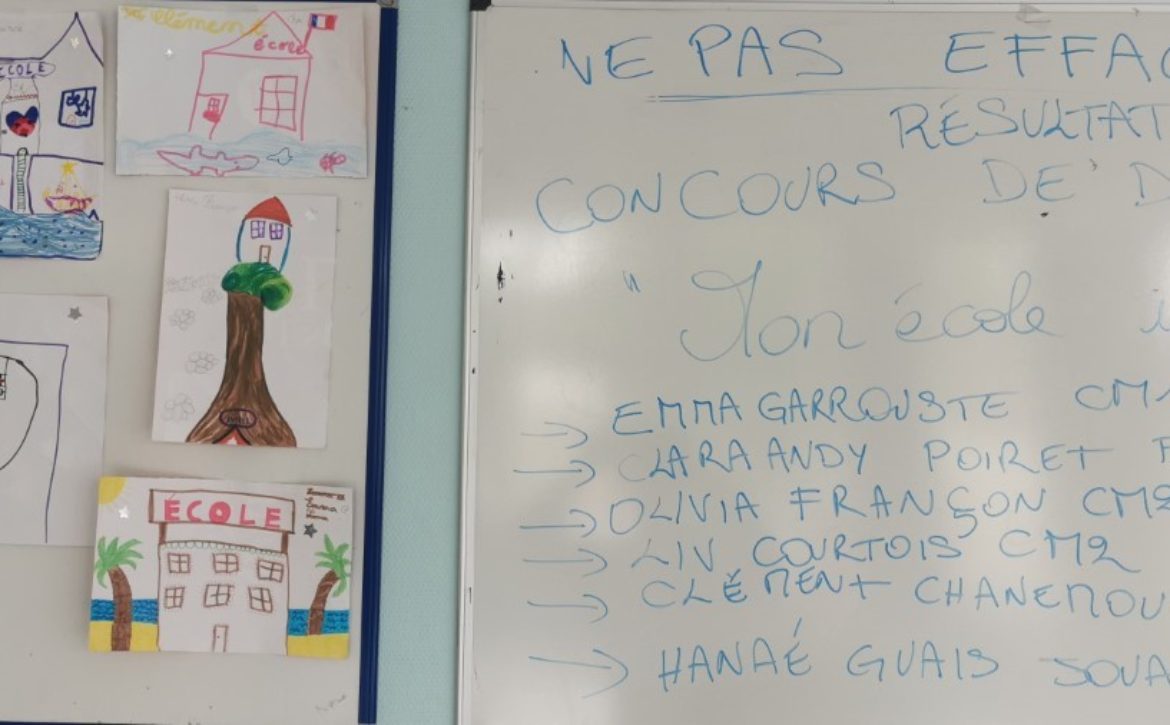 ÉCOLE
clément
école
ÉCOLE
NE PAS EFFAC
RÉSULTAT
CONCOURS DE D
" Mon école i
→ EMMA GARROUSTE CM1
→ CLARA ANDY POIRET
→ OLIVIA FRANÇON CM2
→ LIV COURTOIS CM2
→ CLÉMENT CHANEMOU
→ HANAÉ GUAIS JOUA